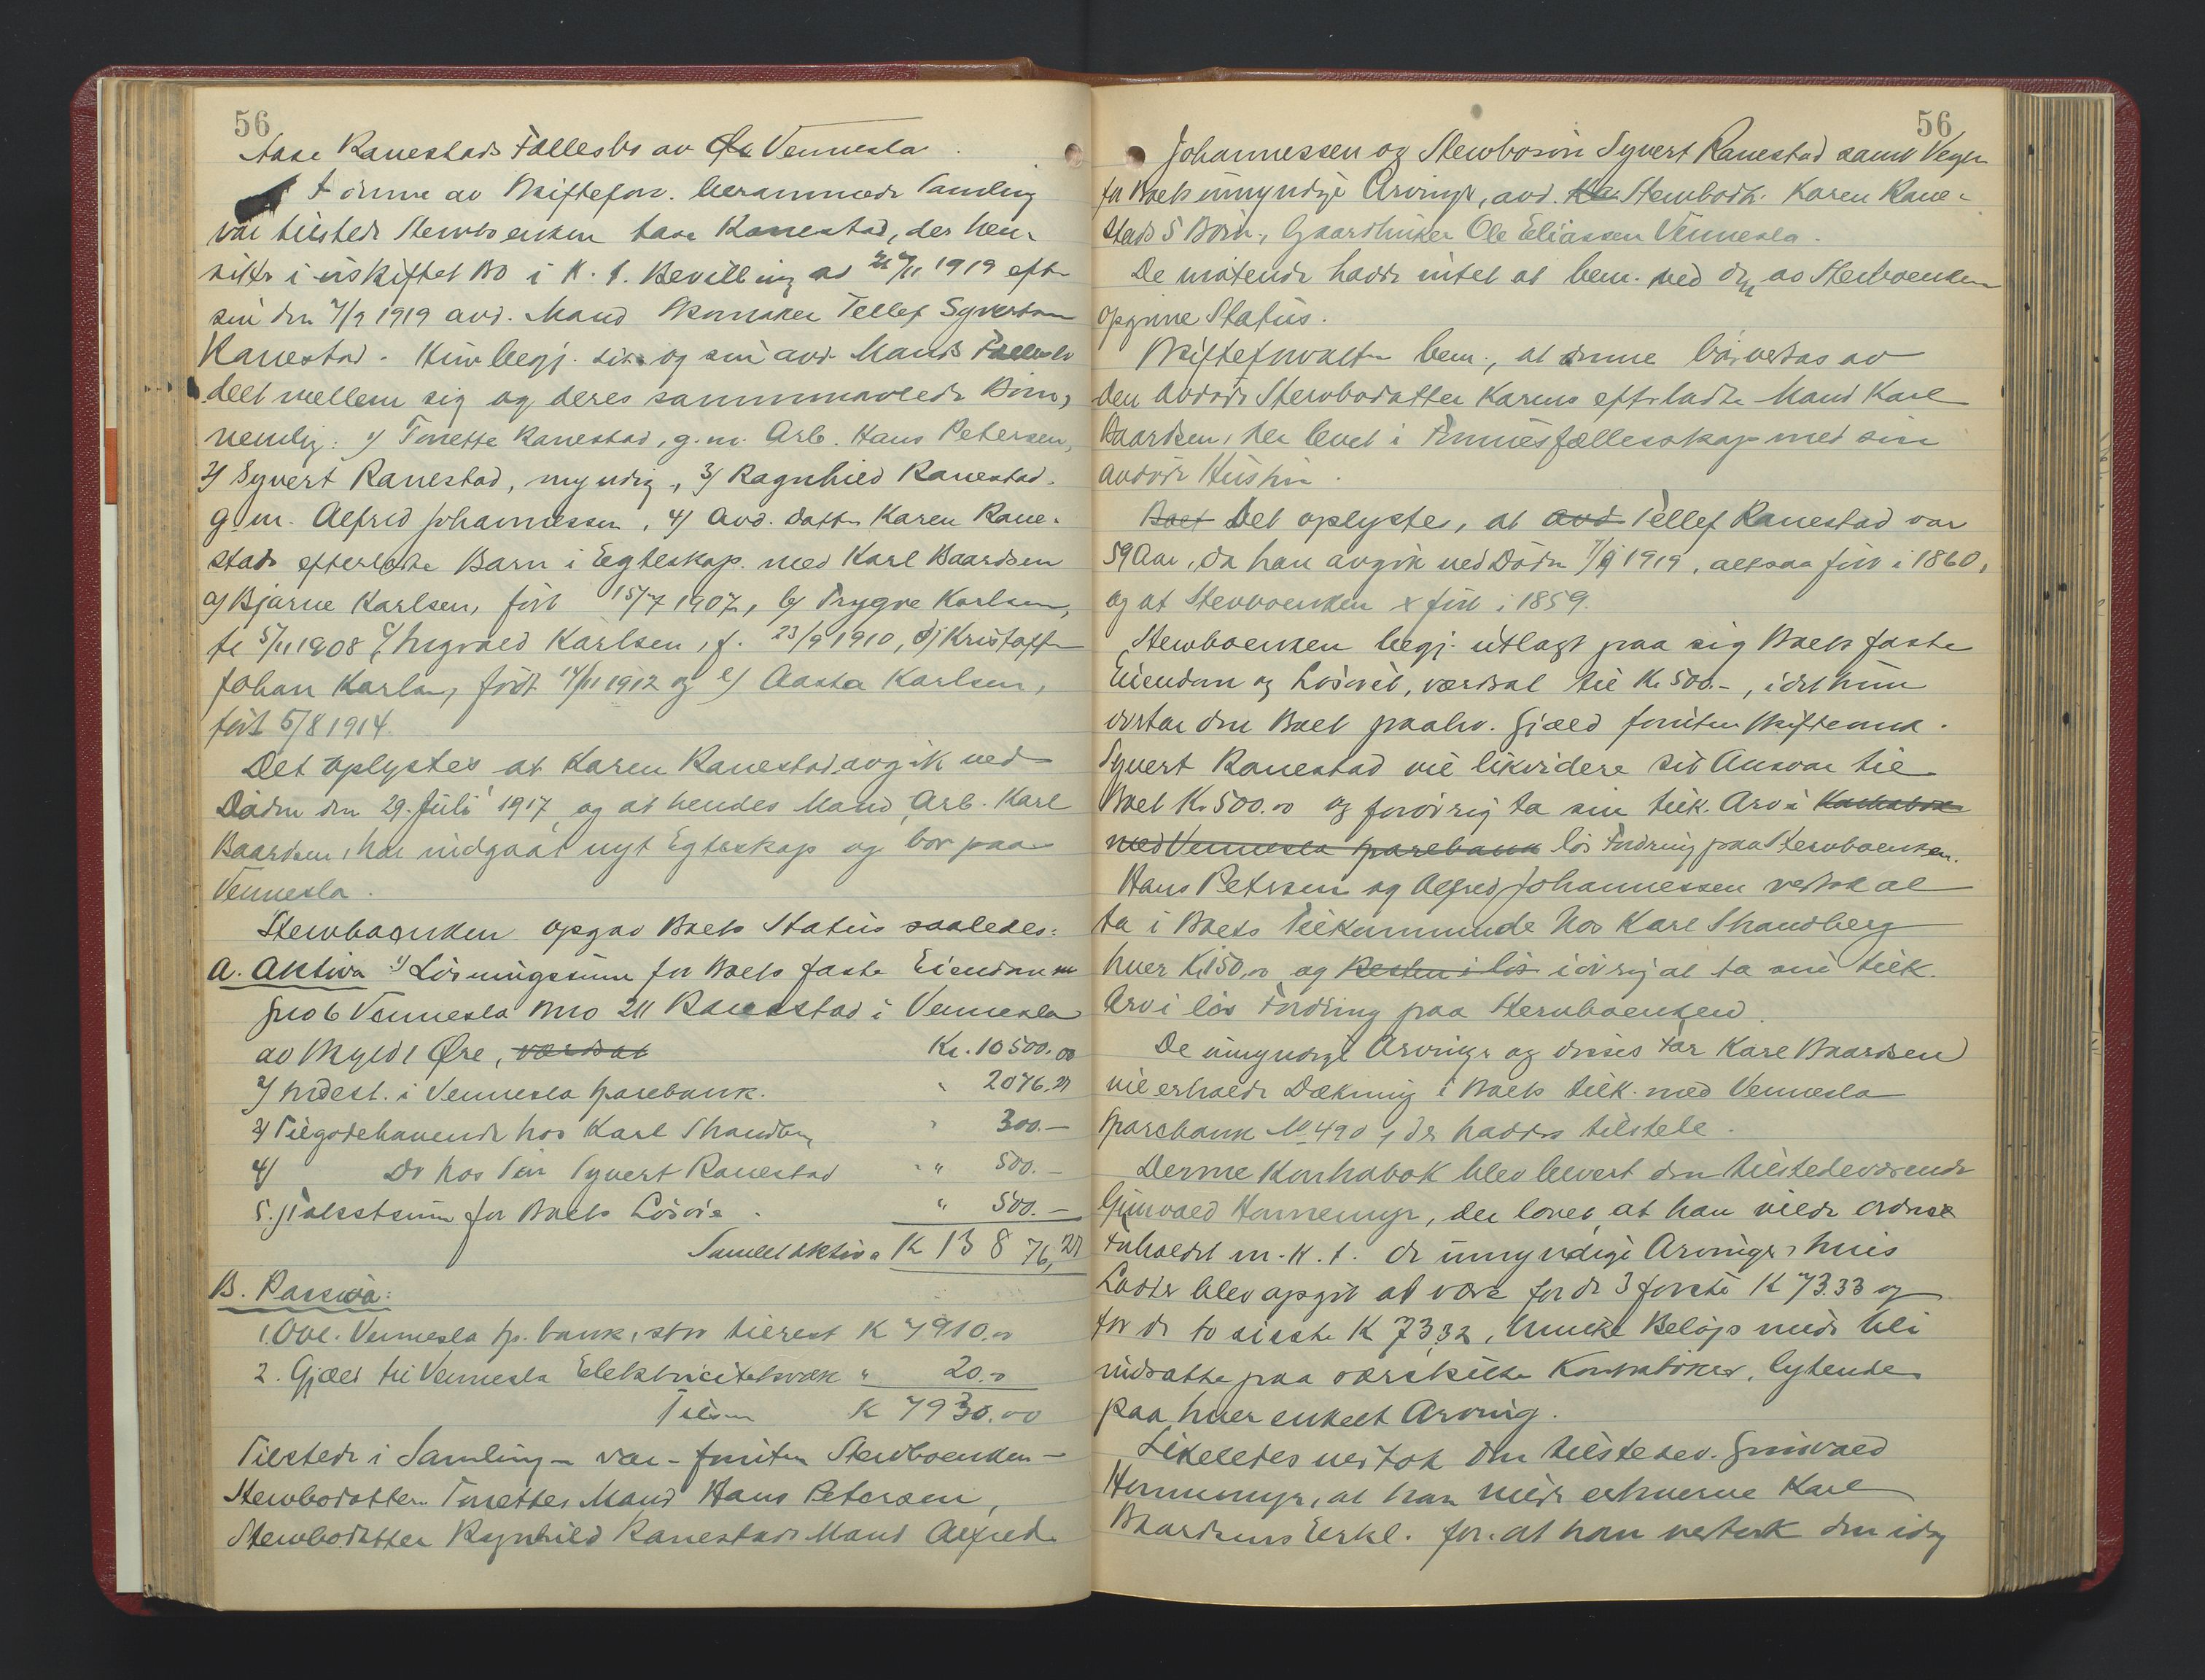 56
Aase Ranestads Fællesbo av Vennesla.
I denne av Skiftefor. berammede Samling
var tilstede Stervboenken Aase Ranestad, der hen-
sitter i uskiftet Bo i H. t. Bevilling av 1919 efter
sin den 7/9 1919 avd. Mand Tellef Syvertsen
Ranestad. Hun begj. sit og sin avd. Mands Fællesbo
delt mellem sig og deres sammenavlede Børn,
nemlig: 1/ Tonette Ranestad, g.m. Arb. Hans Petersen,
2/ Syvert Ranestad, myndig, 3/ Ragnhild Ranestad.
g.m. Alfred Johannessen, 4/ Avd. datter Karen Rane-
stads efterladte Barn i Egteskap med Karl Baardsen
a/ Bjarne Karlsen, født 15/7 1907, b/ Trygve Karlsen,
f. 5/11 1908 c/ Ingvald Karlsen, f. 23/9 1910, d/ Kristoffer
Johan Karlsen, født 1912 og e/ Aasta Karlsen,
født 5/8 1914.
Det oplystes at Karen Ranestad avgik ved
Døden den 29. Juli 1917, og at hendes Mand, Arb. Karl
Baardsen, har indgaat nyt Egteskap og bor paa
Vennesla.
Stervboenken opgav Boets Status saaledes:
A. Aktiva 1/ Løsningssum for Boets faste Eiendom
gno 6 Vennesla Bno 211 Ranestad i Vennesla
av Skyld 1 Øre, værdsat Kr. 10500.00
2/ Indest. i Vennesla Sparebank. " 2076.21
3/ Tilgodehavende hos Karl Strandberg " 300.—
4/ Do hos Søn Syvert Ranestad " 500.—
5. Takstsum for Boets Løsøre. " 500.—
Samlet Aktiva K 13 876,21
B. Passiva:
1. Obl. Vennesla Sp. bank, stor tilrest K 7910.00
2. Gjæld til Vennesla Elektricitetsverk " 20.00
Tilsam K 7930.00
Tilstede i Samlingen var - foruten Stervboenken —
Stervbodatteren Tonettes Mand Hans Petersen,
Stervbodatter Ragnhild Ranestads Mand Alfred
56
Johannessen og Stervbosøn Syvert Ranestad samt Verge
for Boets umyndige Arvinger, avd. Stervbodtr. Karen Rane-
stads 5 Børn, Gaardbruker Ole Eliassen Vennesla.
De møtende hadde intet at bem. ved den av Stervboenken
opgivne Status.
Skifteforvalteren bem., at denne bør vedtas av
den avdøde Stervbodatter Karens efterladte Mand Karl
Baardsen, der levet i Formuesfællesskap med sin
avdøde Hustru.
Boet Det oplystes, at avd Tellef Ranestad var
59 Aar, da han avgik ved Døden 7/9 1919, altsaa født i 1860,
og at Stervboenken er født i 1859.
Stervboenken begj. utlagt paa sig Boets faste
Eiendom og Løsøre, værdsat til K. 500.-, idet hun
vedtar den Boet paahv. Gjæld foruten Skifteomk.
Syvert Ranestad vil likvidere sit Ansvar til
Boet K. 500.00 og forøvrig ta sin tilk. Arv i Kontrabok
med Vennesla Sparebank løs Fordring paa Stervboenken.
Hans Petersen og Alfred Johannessen vedtok at
ta i Boets Tilkommende hos Karl Strandberg
hver K. 150,00 og Resten i løs iøvrig at ta sin tilk.
Arv i løs Fordring paa Stervboenken.
De umyndige Arvinger og disses Far Karl Baardsen
vil erholde Dækning i Boets tilk. med Vennesla
Sparebank No 490, der haddes tilstede.
Denne Kontrabok blev levert den tilstedeværende
Gunvald Hommemyr, der lovet, at han vilde ordne
Forholdet m. H. t. de umyndige Arvinger, hvis
Lodder blev opgit at være for de 3 første K 73.33 og
for de to sidste K 73,32, hvilke Beløp maa bli
indsatte paa særskilte Kontrabøker, lydende
paa hver enkelt Arving.
Likeledes vedtok den tilstedev. Gunvald
Hommemyr, at han vilde erhverve Karl
Baardsens Erkl. for at han vedtok den idag